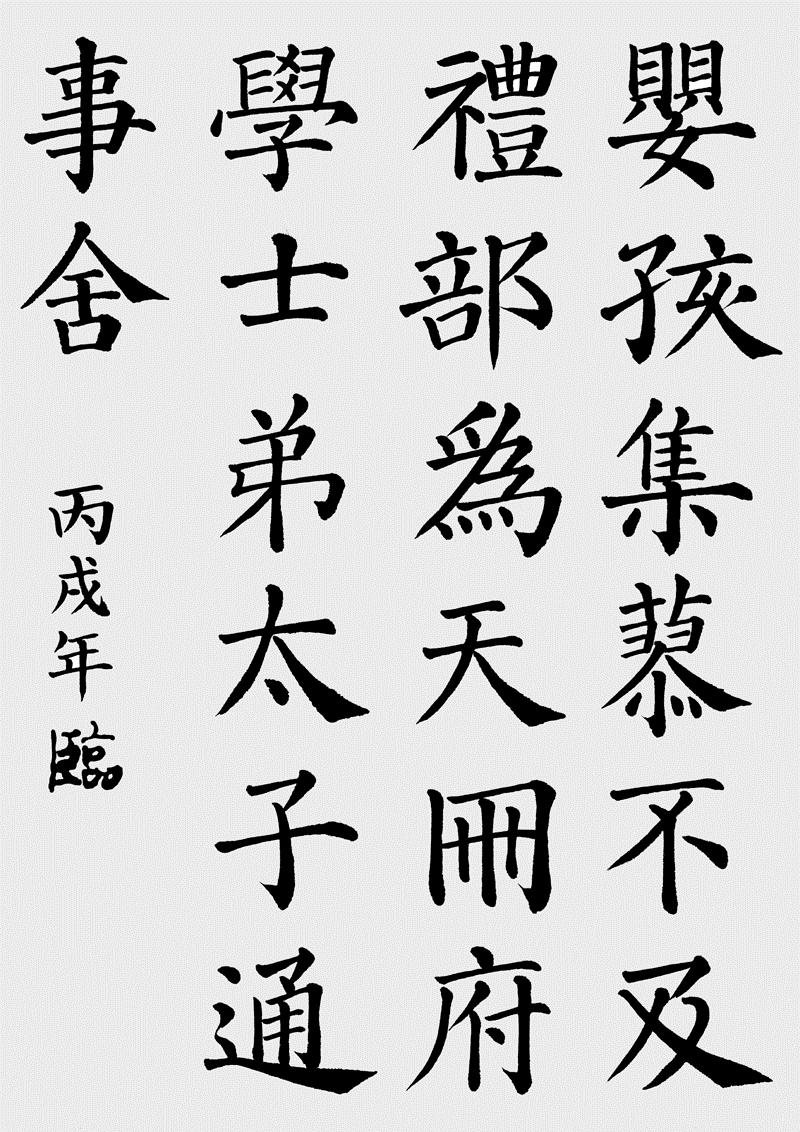 嬰孩集蓼不及
禮部爲天冊府
學士弟太子通
事舍
丙戌年臨